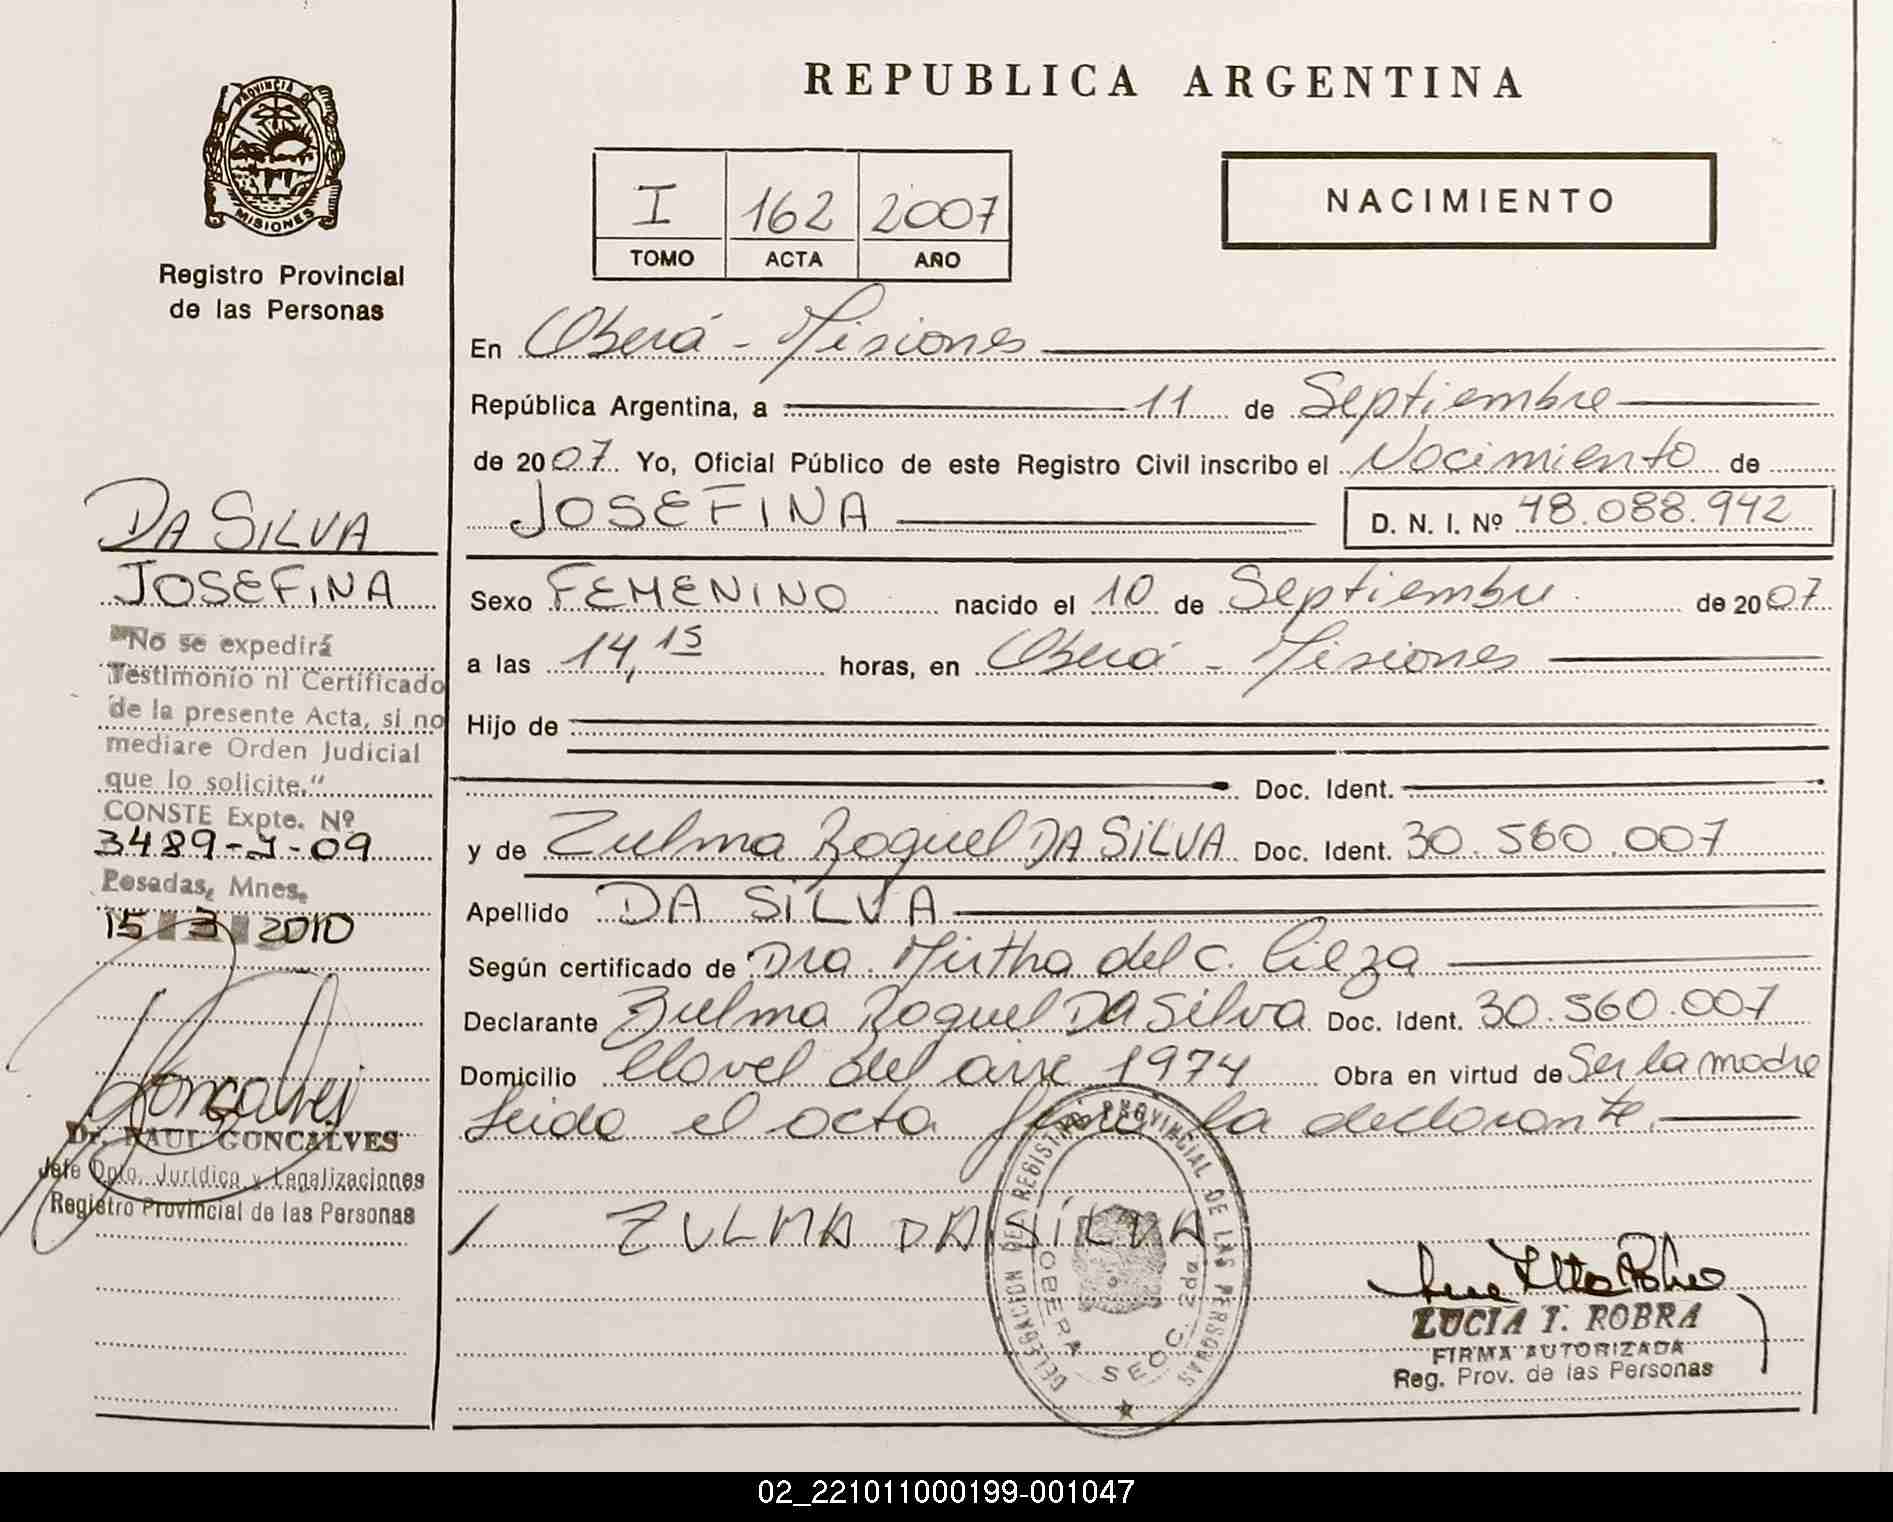 PROVINCIA DE
MISIONES
Registro Provincial
de las Personas
DA SILVA
JOSEFINA
"No se expedirá
Testimonio ni Certificado
de la presente Acta, si no
mediare Orden Judicial
que lo solicite."
CONSTE Expte. Nº
3489-J-09
Posadas, Mnes.
15 3 2010
Gonçalves
Dr. RAUL GONCALVES
Jefe Dpto. Jurídica y Legalizaciones
Registro Provincial de las Personas
REPUBLICA ARGENTINA
I 162 2007
TOMO ACTA AÑO
NACIMIENTO
En Oberá - Misiones
República Argentina, a 11 de Septiembre
de 2007. Yo, Oficial Público de este Registro Civil inscribo el Nacimiento de
JOSEFINA D. N. I. Nº 48.088.942
Sexo FEMENINO nacido el 10 de Septiembre de 2007
a las 14,15 horas, en Oberá - Misiones
Hijo de
Doc. Ident.
y de Zulma Raquel DA SILVA Doc. Ident. 30.560.007
Apellido DA SILVA
Según certificado de Dra. Mirtha del C. Cieza
Declarante Zulma Raquel DA Silva Doc. Ident. 30.560.007
Domicilio Clavel del aire 1974 Obra en virtud de Ser la madre
Leida el acta firma la declarante.
ZULMA DA SILVA
DELEGACION DEL REGISTRO PROVINCIAL DE LAS PERSONAS
OBERA SECC. 2da
LUCIA I. ROBRA
FIRMA AUTORIZADA
Reg. Prov. de las Personas
02_221011000199-001047